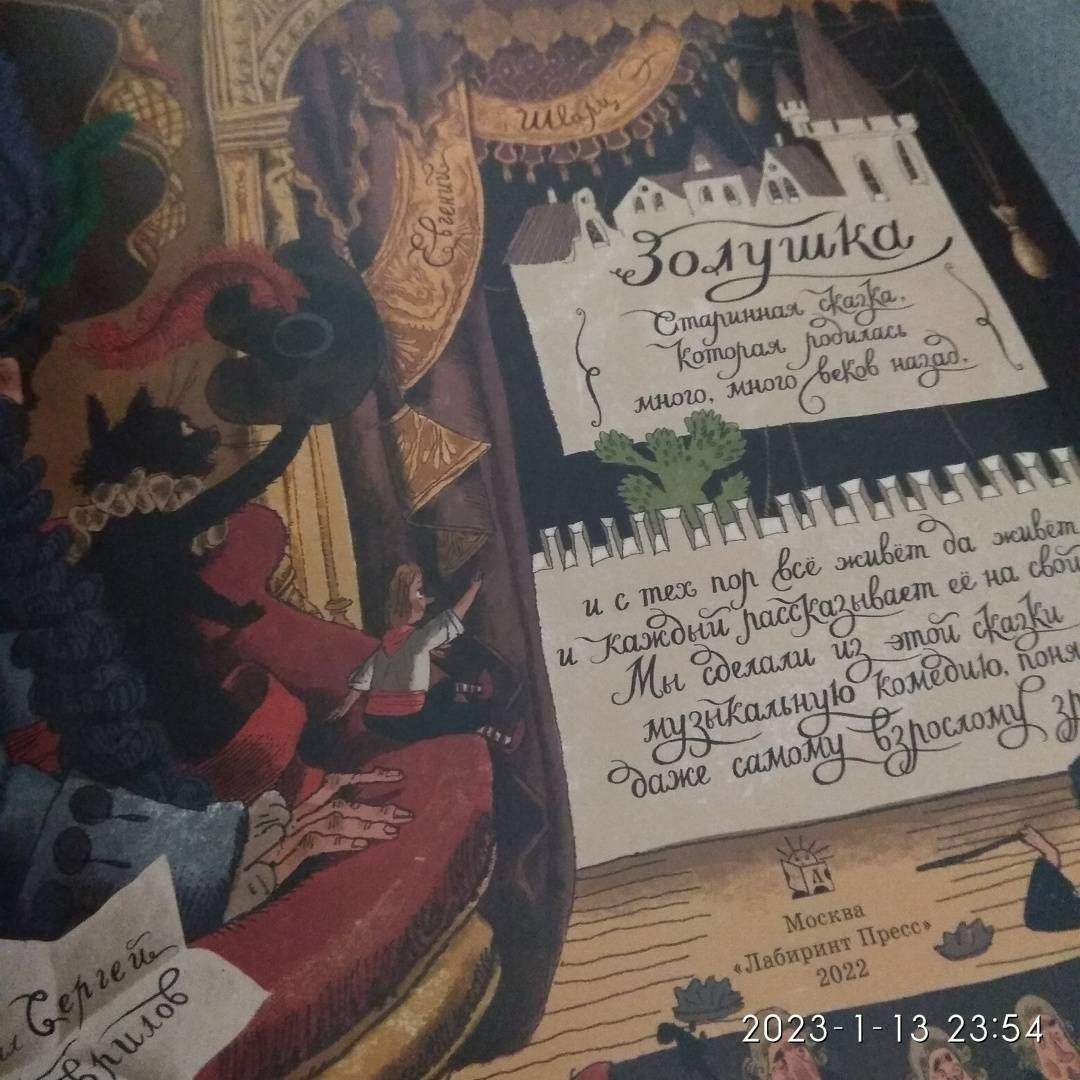 Евгений
Шварц
Золушка
Старинная сказка,
которая родилась
много, много веков назад,
и с тех пор всё живёт да живёт,
и каждый рассказывает её на свой
Мы сделали из этой сказки
музыкальную комедию,
даже самому взрослому
Москва
«Лабиринт Пресс»
2022
Сергей
2023-1-13 23:54